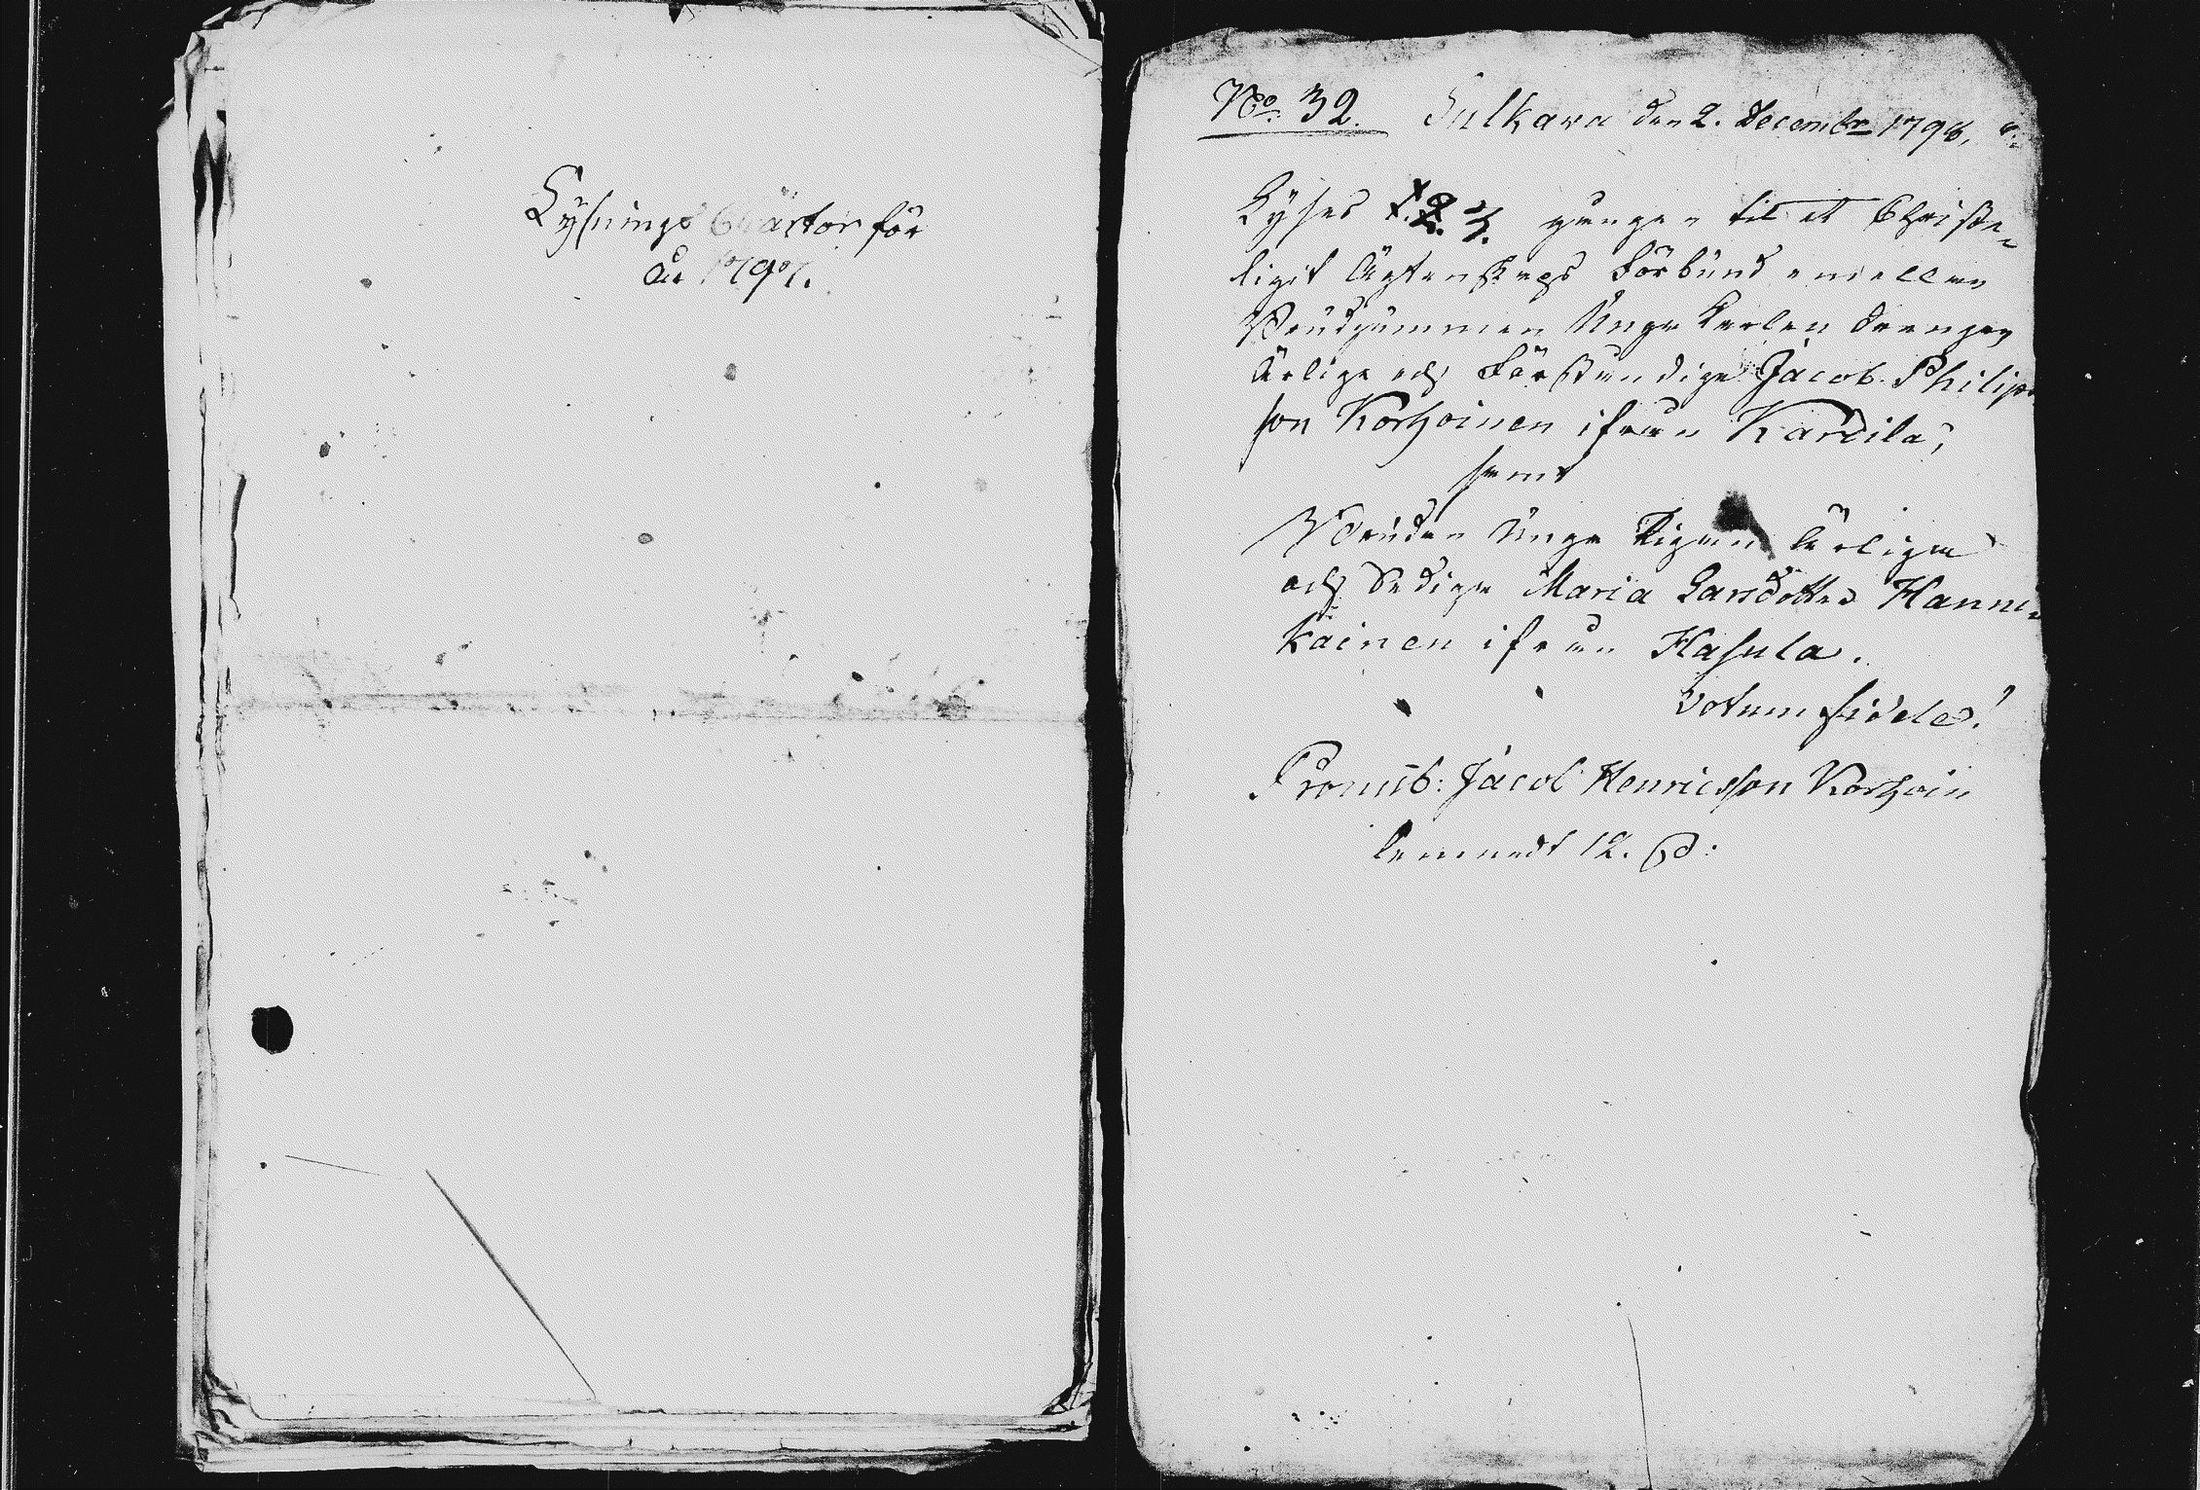 Lysnings Cvartor för
År 1797.
No. 32. Sulkava den 2. Decembr 1796.
Lyses 1. 2. 3. gången til et Christe-
ligit Ägtenskaps Förbund emellan
Brudgummen Unge Karlen Drengen
Ärlige och Förståndige Jacob Philips
son Korhoinen ifrån Kardila,
samt
Bruden Unge Pigan Ärliga
och Sediga Maria Larsdotter Hanni-
käinen ifrån Hasula.
Votum fidele!
Pronub: Jacob Henricsson Korhoin
lemnadt 12.